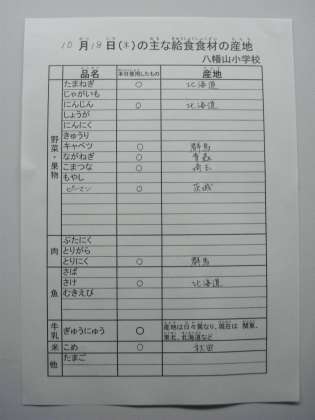 10月18日(木)の主な給食食材の産地
八幡山小学校
品名 本日使用したもの 産地
野菜・果物
たまねぎ ○ 北海道
じゃがいも
にんじん ○ 北海道
しょうが
にんにく
きゅうり
キャベツ ○ 群馬
ながねぎ ○ 青森
こまつな ○ 埼玉
もやし
ピーマン ○ 茨城
肉
ぶたにく
とりがら
とりにく ○ 群馬
魚
さば
さけ ○ 北海道
むきえび
牛乳 ぎゅうにゅう ○ 産地は日々異なり、現在は 関東、
東北、北海道など
米 こめ ○ 秋田
他 たまご